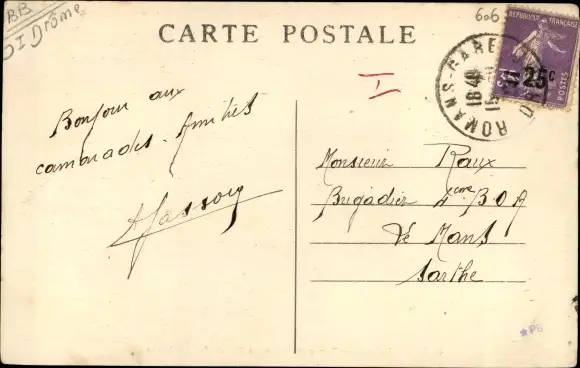 BB
DI Drôme
CARTE POSTALE
606
REPUBLIQUE FRANCAISE
25c
POSTES
ROMANS-GARE
18 40
I
Bonjour aux
camarades. Amitiés
Monsieur Raux
Brigadier 4eme B.O.A
Le Mans
Sarthe
*PB